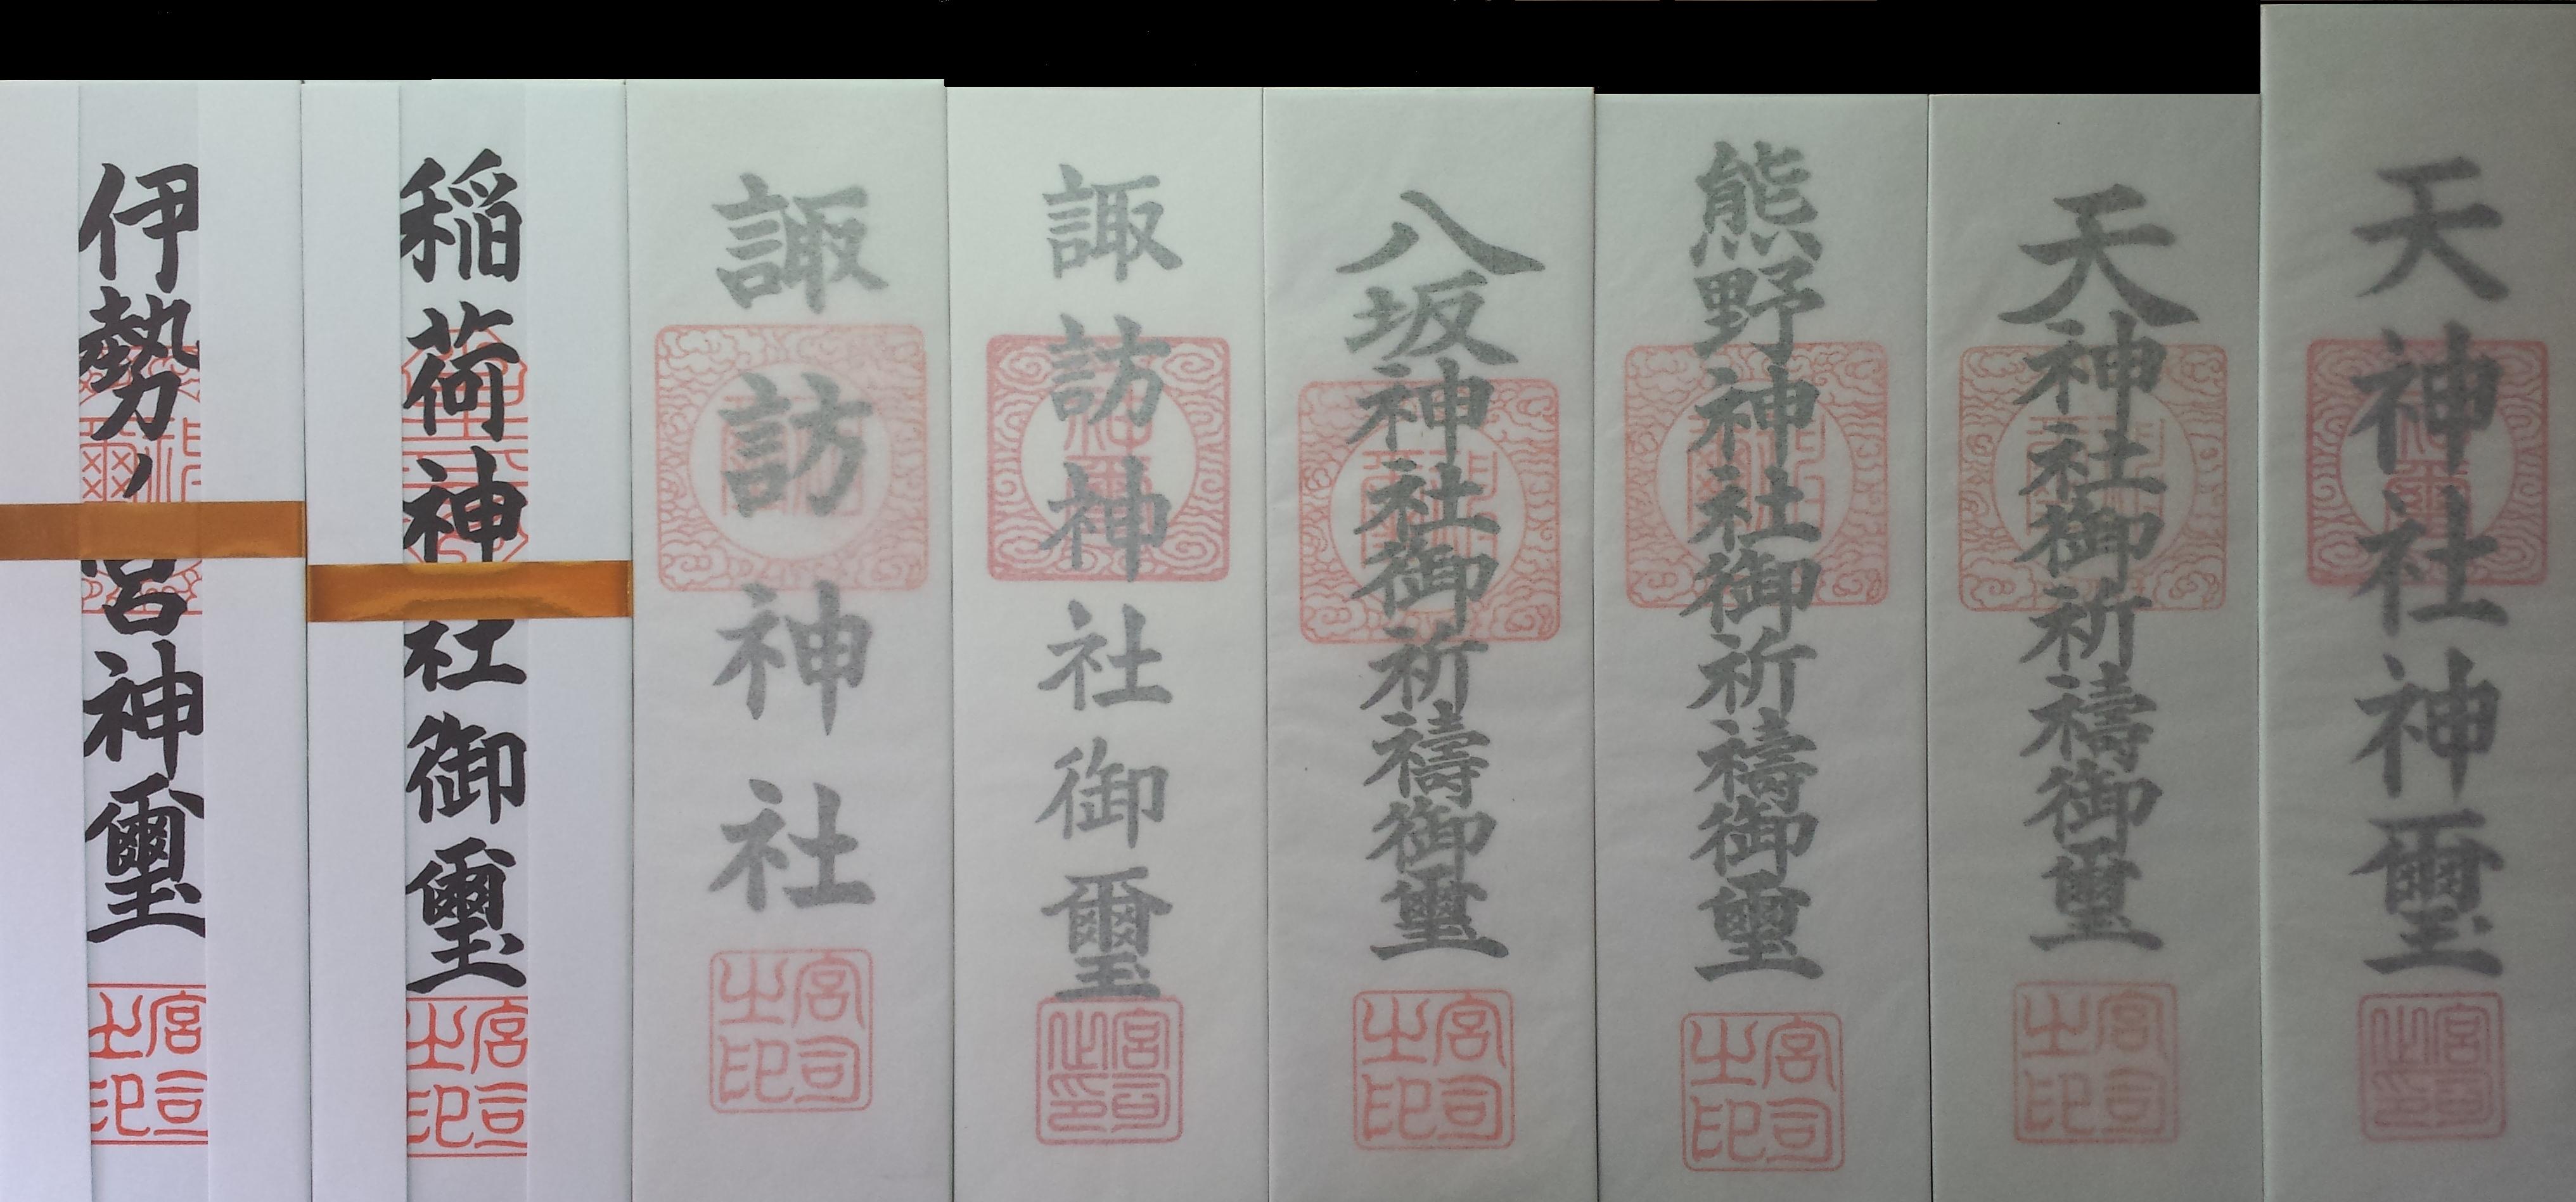 伊勢ノ宮神璽
宮司之印
稲荷神社御璽
宮司之印
諏訪神社
宮司之印
諏訪神社御璽
宮司之印
八坂神社御祈禱御璽
宮司之印
熊野神社御祈禱御璽
宮司之印
天神社御祈禱御璽
宮司之印
天神社神璽
宮司之印